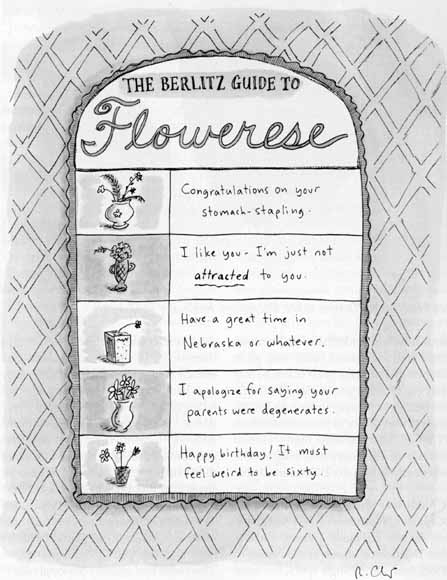 THE BERLITZ GUIDE TO
Flowerese
Congratulations on your
stomach-stapling.
I like you - I'm just not
attracted to you.
Have a great time in
Nebraska or whatever.
I apologize for saying your
parents were degenerates.
Happy birthday! It must
feel weird to be sixty.